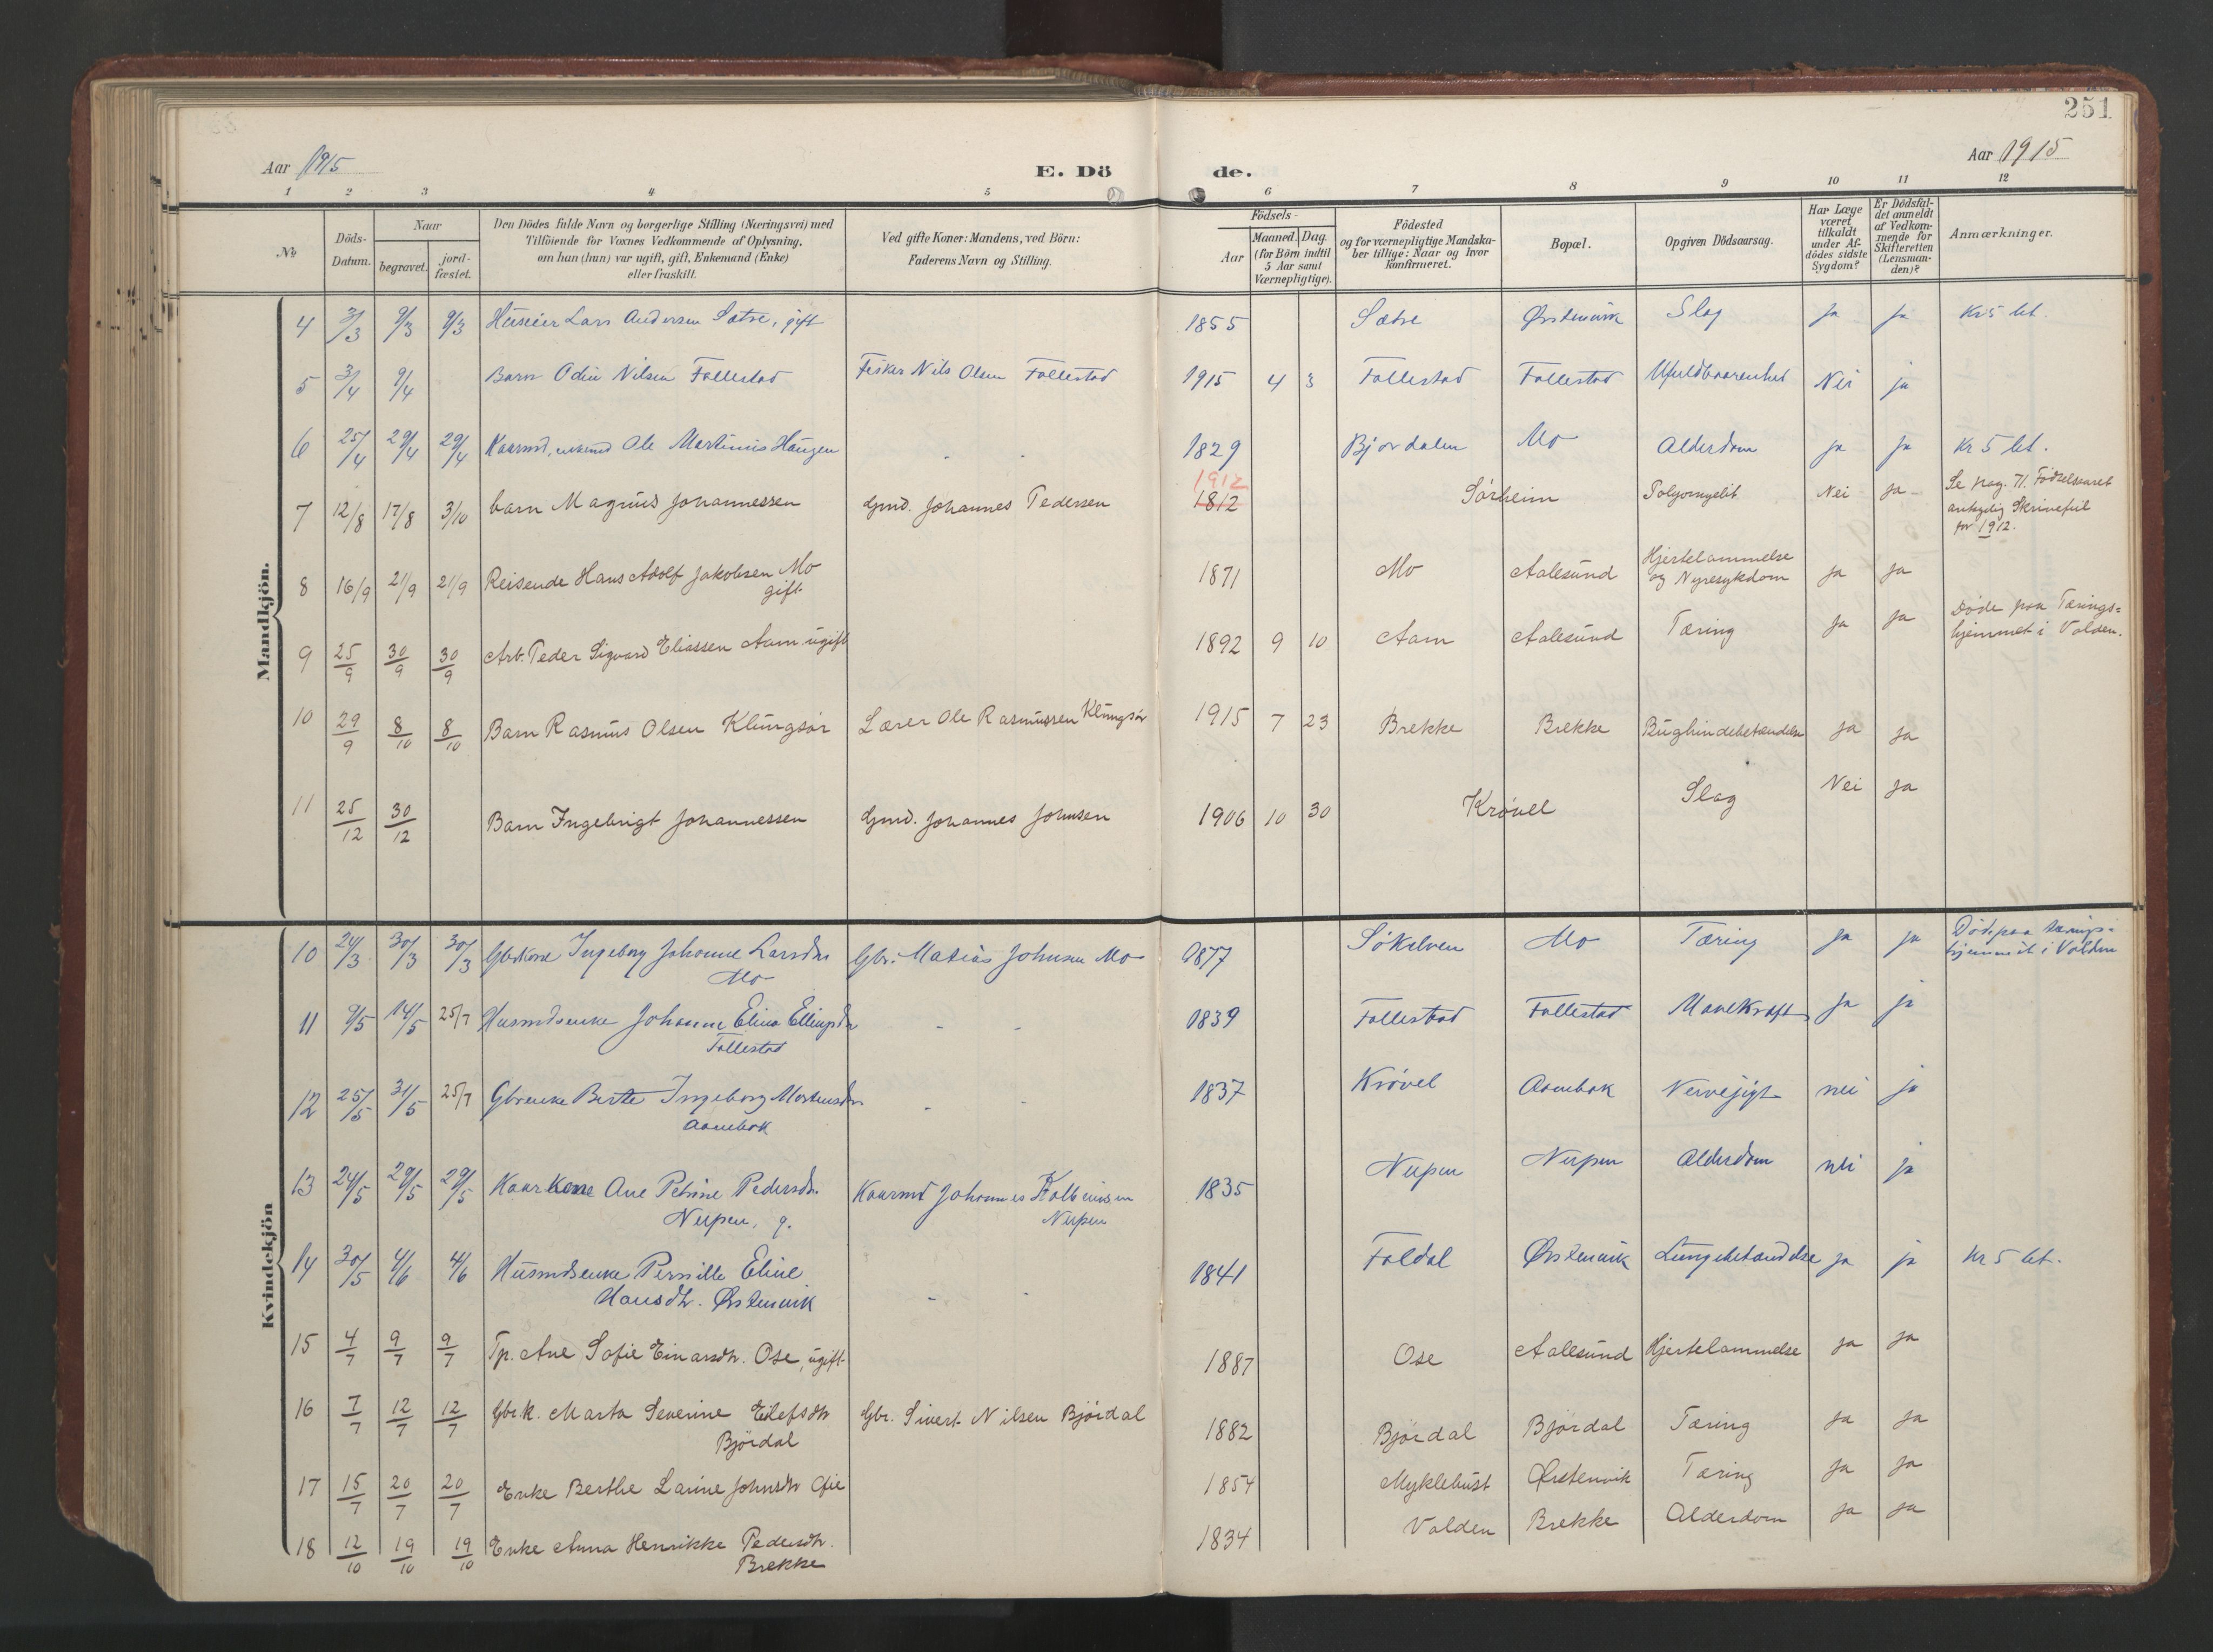 251
Aar 1915
E. Dö
de.
Aar 1915
1 2 3 4 5 6 7 8 9 10 11 12
№
Döds-Datum.
Naar
begravet.
jord-fæstet.
Den Dödes fulde Navn og borgerlige Stilling (Næringsvei) med
Tilföiende for Voxnes Vedkommende af Oplysning,
om han (hun) var ugift, gift, Enkemand (Enke)
eller fraskilt.
Ved gifte Koner: Mandens, ved Börn:
Faderens Navn og Stilling.
Födsels-
Aar
Maaned. Dag.
(for Börn indtil
5 Aar samt
Værnepligtige).
Födested
og for værnepligtige Mandska-
ber tillige: Naar og hvor
konfirmeret.
Bopæl.
Opgiven Dödsaarsag.
Har Læge
været
tilkaldt
under Af-
dödes sidste
Sygdom?
Er Dödsfal-
det anmeldt
af Vedkom-
mende for
Skifteretten
(Lensman-
den)?
Anmærkninger.
Mandkjön.
4 3/3 9/3 9/3 Huseier Lars Andersen Sætre, gift 1855 Sætre Ørstenvik Slag ja ja Kr 5 bet.
5 3/4 9/4 Barn Odin Nilsen Follestad Fisker Nils Olsen Follestad 1915 4 3 Follestad Follestad Ufuldbaarenhet Nei ja
6 25/4 29/4 29/4 Kaarmd, enkemd Ole Martinus Haugen - - 1829 Bjordalen Mo Alderdom ja ja Kr 5 bet.
7 12/8 17/8 3/10 barn Magnus Johannessen Gmd. Johannes Pedersen 1912 1812 Sørheim Polyomyelit Nei ja - Se pag. 71. Fødselsaaret
antagelig Skrivefeil
for 1912.
8 16/9 21/9 21/9 Reisende Hans Adolf Jakobsen Mo
gift 1871 Mo Aalesund Hjertelammelse
og Nyresykdom ja ja
9 25/9 30/9 30/9 Arb. Peder Sigvard Eliassen Aam ugift 1892 9 10 Aam Aalesund Tæring ja ja Døde paa Tærings=
hjemmet i Volden.
10 29/9 8/10 8/10 Barn Rasmus Olsen Klungsør Lærer Ole Rasmussen Klungsør 1915 7 23 Brekke Brekke Bughindebetændelse ja ja
11 25/12 30/12 Barn Ingebrigt Johannessen Gmd. Johannes Johnsen 1906 10 30 Krøvel Slag Nei ja
Kvindekjön
10 24/3 30/3 30/3 Gbrkone Ingeborg Johanne Larsdtr
Mo Gbr. Matias Johnsen Mo 1877 Søkelven Mo Tæring ja ja Døde paa tærings-
hjemmet i Volden
11 9/5 14/5 25/7 Husmdsenke Johanne Elina Ellingsdtr
Follestad - - 1839 Follestad Follestad Mavekræft ja ja
12 25/5 31/5 25/7 Gbrenke Berte Ingeborg Mortensdtr
Aamebak - - 1837 Krøvel Aamebak Nervegigt nei ja
13 24/5 29/5 29/5 Kaarkone Ane Petrine Pedersdtr
Nupen, g. Kaarmd Johannes Kolbeinsen
Nupen 1835 Nupen Nupen Alderdom nei ja
14 30/5 4/6 4/6 Husmdsenke Pernille Eline
Hansdtr. Ørstenvik - - 1841 Foldal Ørstenvik Lungebetændelse ja ja Kr 5 bet.
15 4/7 9/7 9/7 Tp. Ane Sofie Einarsdtr. Ose, ugift 1887 Ose Aalesund Hjertelammelse ja ja
16 7/7 12/7 12/7 Gbr.k. Marta Severine Eilefsdtr
Bjørdal Gbr. Sivert Nilsen Bjørdal 1882 Bjørdal Bjørdal Tæring ja ja
17 15/7 20/7 20/7 Enke Berthe Larine Johnsdtr 1854 Myklebust Ørstenvik Tæring ja ja
18 12/10 19/10 19/10 Enke Anna Henrikke Pedersdtr.
Brekke 1834 Volden Brekke Alderdom ja ja